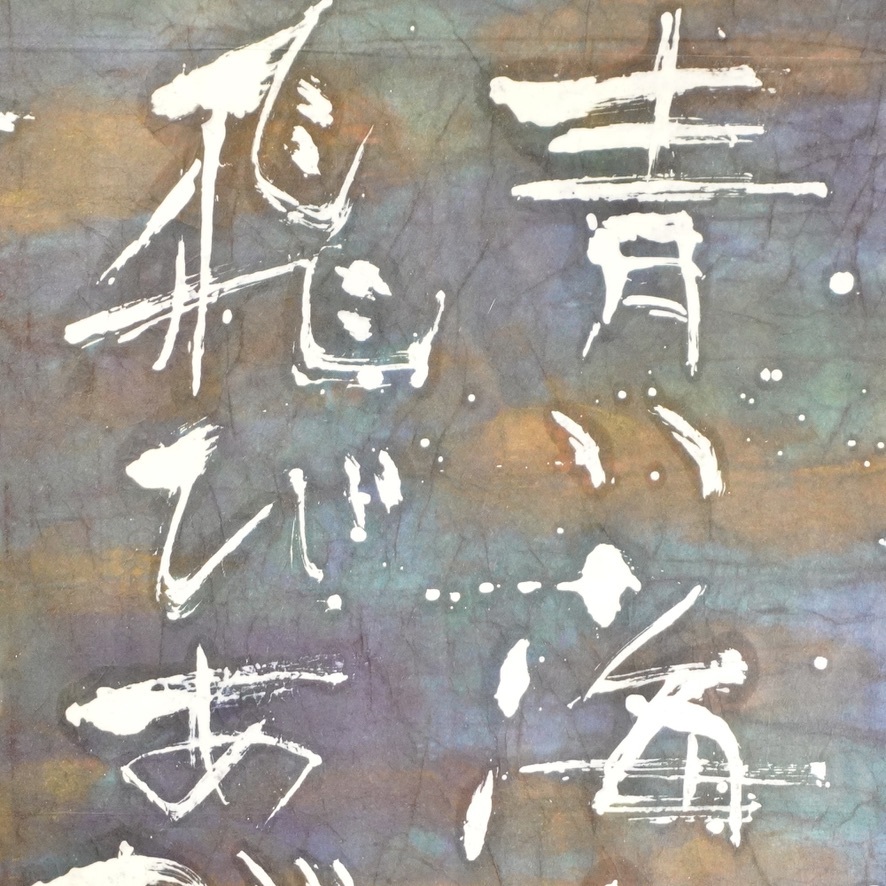 青い海
飛びあ